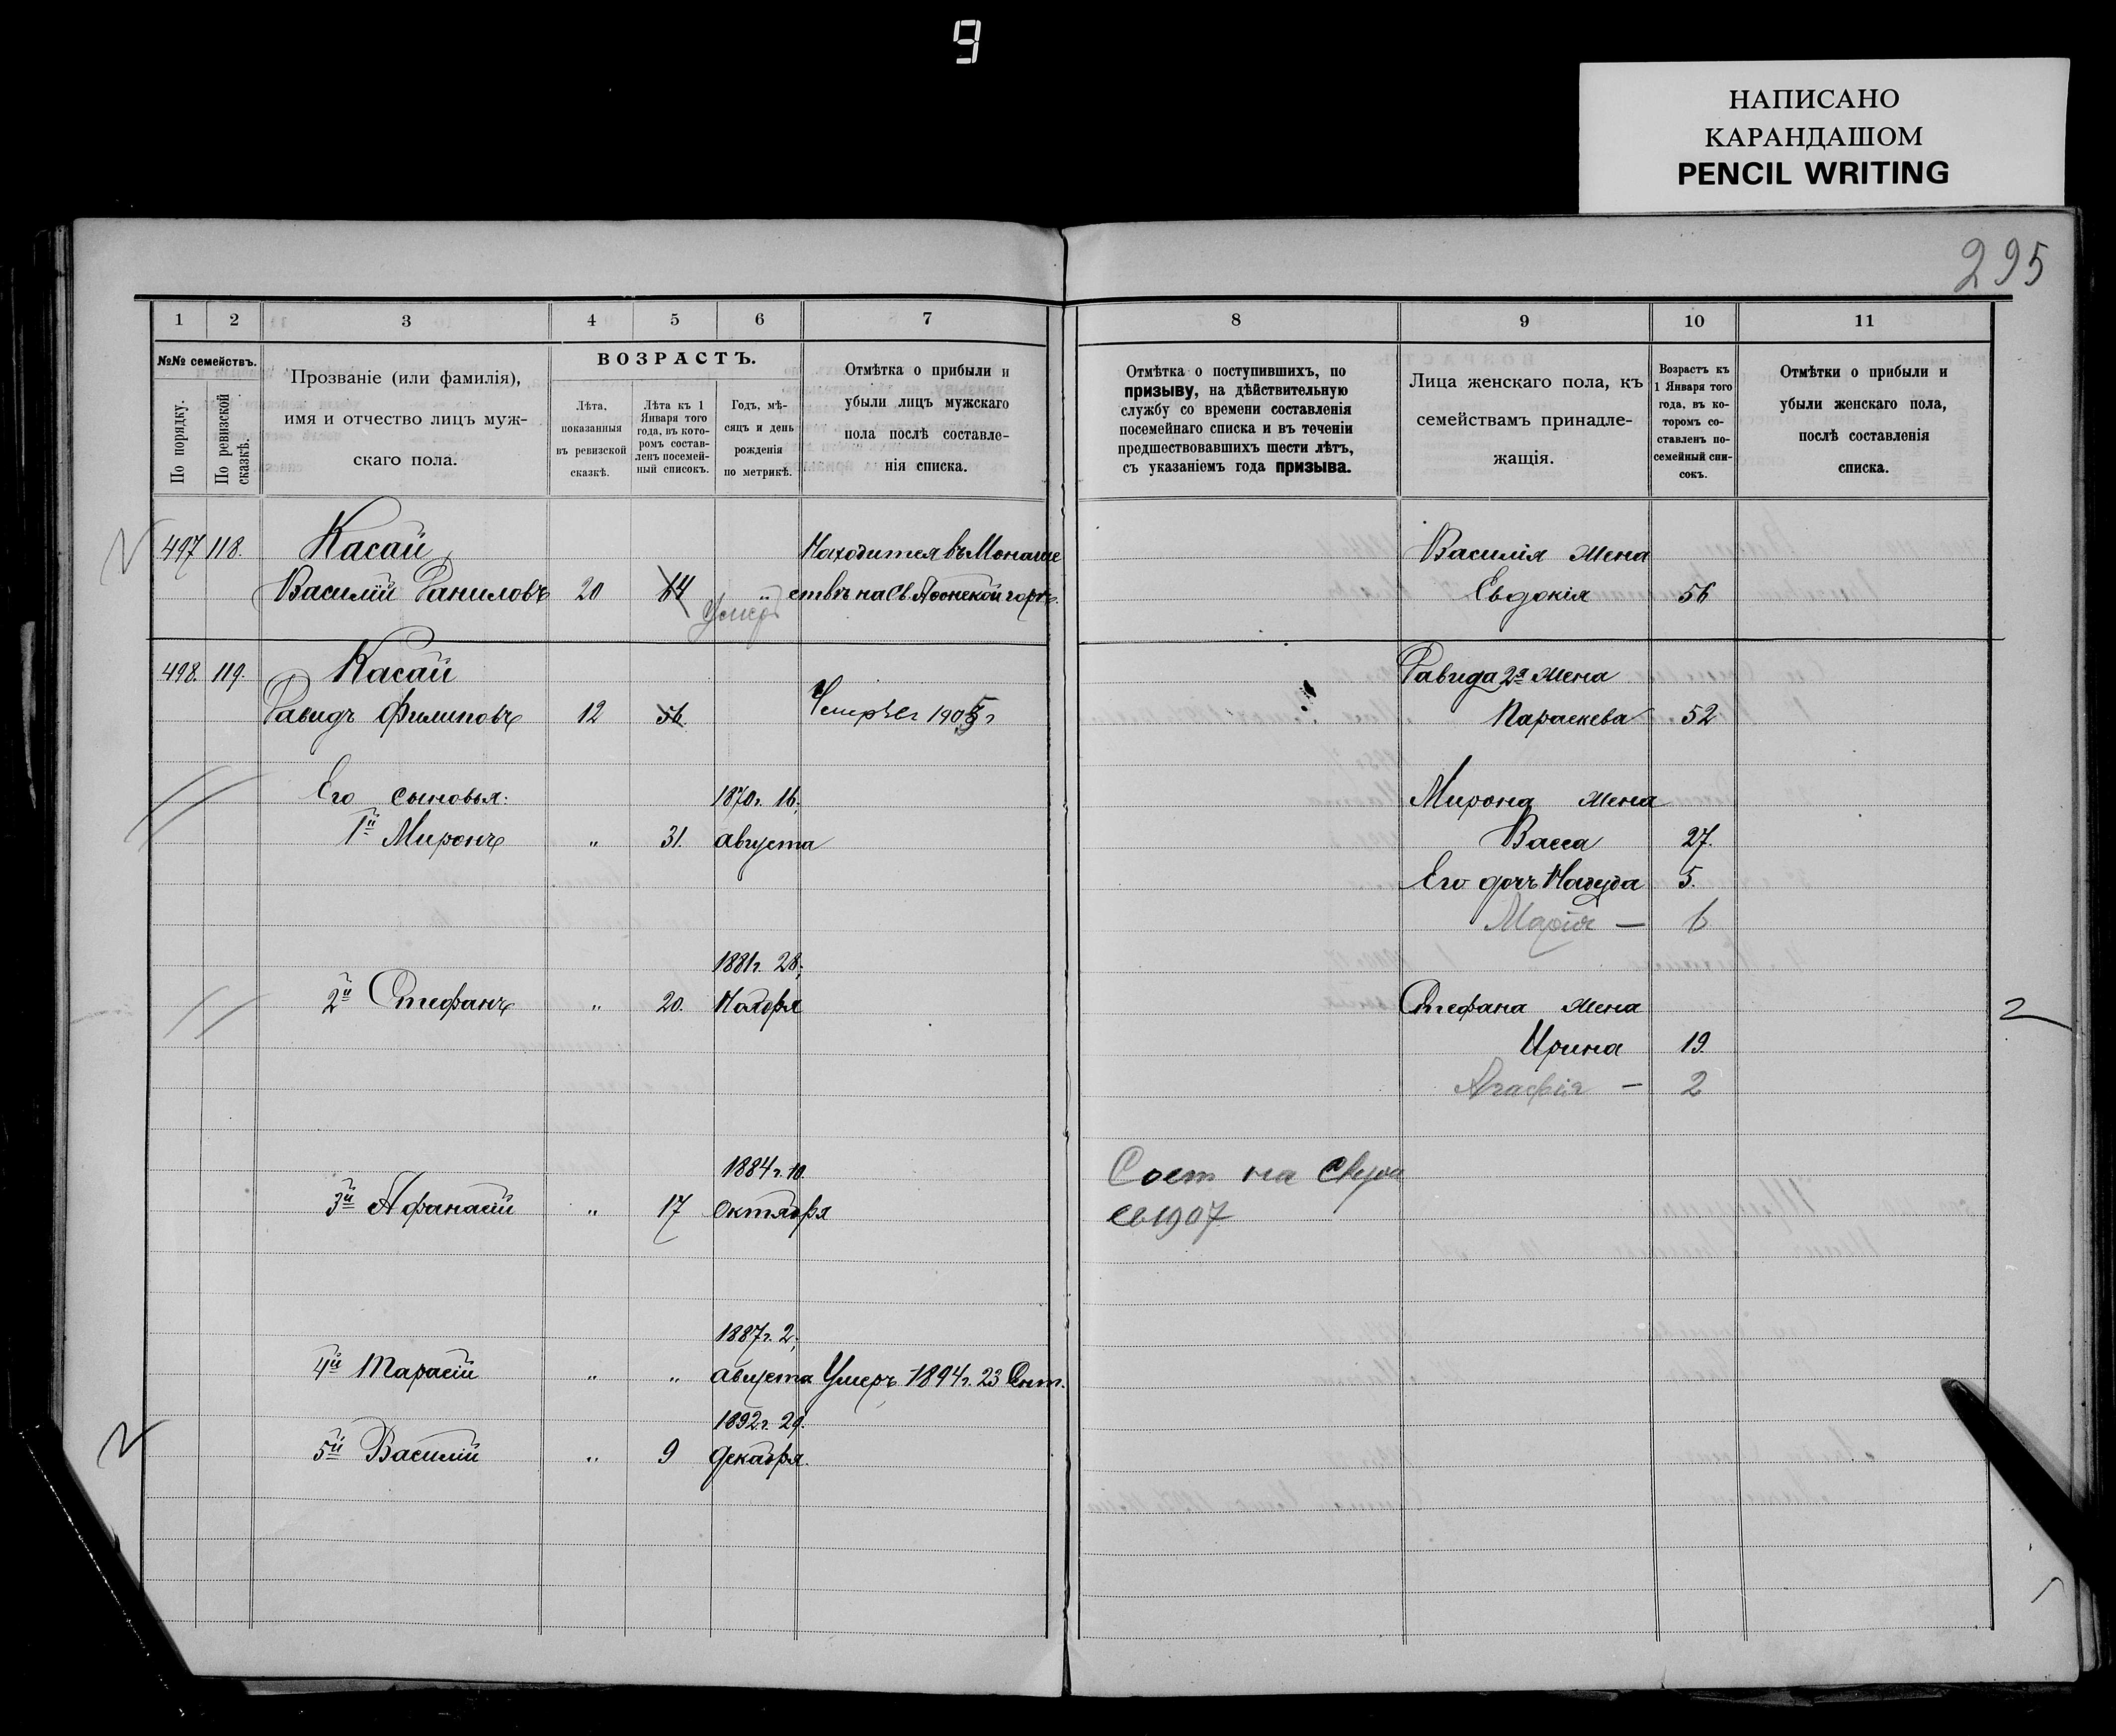 9
НАПИСАНО
КАРАНДАШОМ
PENCIL WRITING
295
1 2 3 4 5 6 7 8 9 10 11
№№ семействъ.
По порядку.
По ревизской сказкѣ.
Прозваніе (или фамилія),
имя и отчество лицъ муж-
скаго пола.
ВОЗРАСТЪ.
Лѣта,
показанныя
въ ревизской
сказкѣ.
Лѣта къ 1
Января того
года, въ кото-
ромъ состав-
ленъ посемей-
ный списокъ.
Годъ, мѣ-
сяцъ и день
рожденія
по метрикѣ.
Отмѣтка о прибыли и
убыли лицъ мужскаго
пола послѣ составле-
нія списка.
Отмѣтка о поступившихъ, по
призыву, на дѣйствительную
службу со времени составленія
посемейнаго списка и въ теченіи
предшествовавшихъ шести лѣтъ,
съ указаніемъ года призыва.
Лица женскаго пола, къ
семействамъ принадле-
жащія.
Возрастъ къ
1 Января того
года, въ ко-
торомъ со-
ставленъ по-
семейный спи-
сокъ.
Отмѣтки о прибыли и
убыли женскаго пола,
послѣ составленія
списка.
497 118. Касай Находится въ Монаше Василія жена
Василій Даниловъ 20 64 „ ствѣ на Св. Аѳонской горѣ. Евдокія 56
Умеръ
498. 119. Касай Давида 2я жена
Давидъ Филиповъ 12 56. Умеръ 190 г Параскева 52
Его сыновья: 1870г. 16, Мирона жена
1й Миронъ „ 31. августа Васса 27.
Его дочь 5.
Марія — 6
1881г. 28,
2й Стефанъ „ 20. Ноября Стефана жена 2
Ирина 19.
Агафія — 2
1884г. 10. Сост на
3й Афанасій „ 17 октября 1907
1887г. 2,
4й Тарасій „ „ августа Умеръ 1894г. 23 Сент.
1892г. 29.
5й Василій „ 9 декабря.